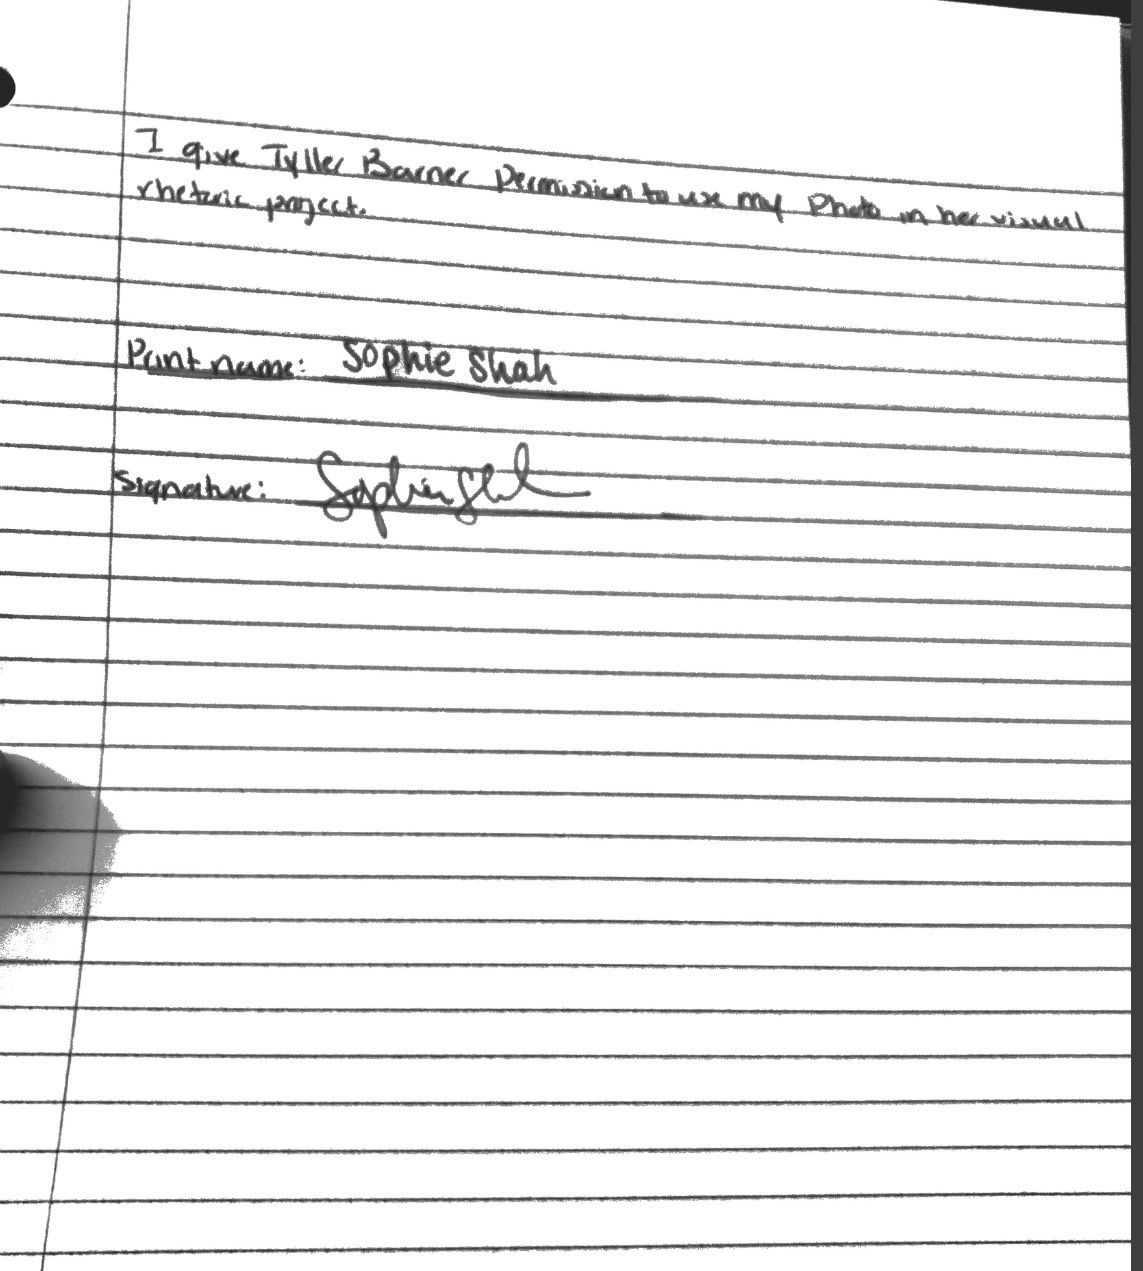 I give Tyller Barner Permission to use my Photo in her visual
rhetoric project.
Print name: Sophie Shah
Signature: Sophie Shah